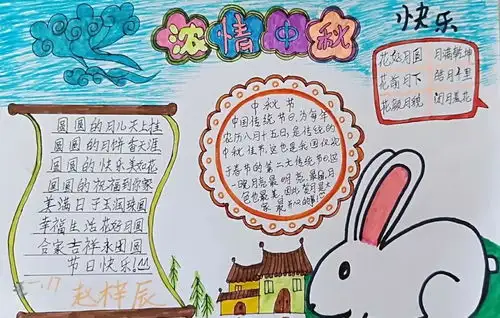 浓情中秋
快乐
花好月圆 月满乾坤
花前月下 皓月千里
花颜月貌 闭月羞花
圆圆的月儿天上挂
圆圆的月饼香天涯
圆圆的快乐美如花
圆圆的祝福到你家
美满日子玉润珠圆
幸福生活花好月圆
合家吉祥永团圆
节日快乐!
中秋节
中国传统节日,为每年
农历八月十五日,是传统的
中秋佳节,这也是我国仅次
于春节的第二大传统节日,这
晚月亮最明亮
赵梓辰